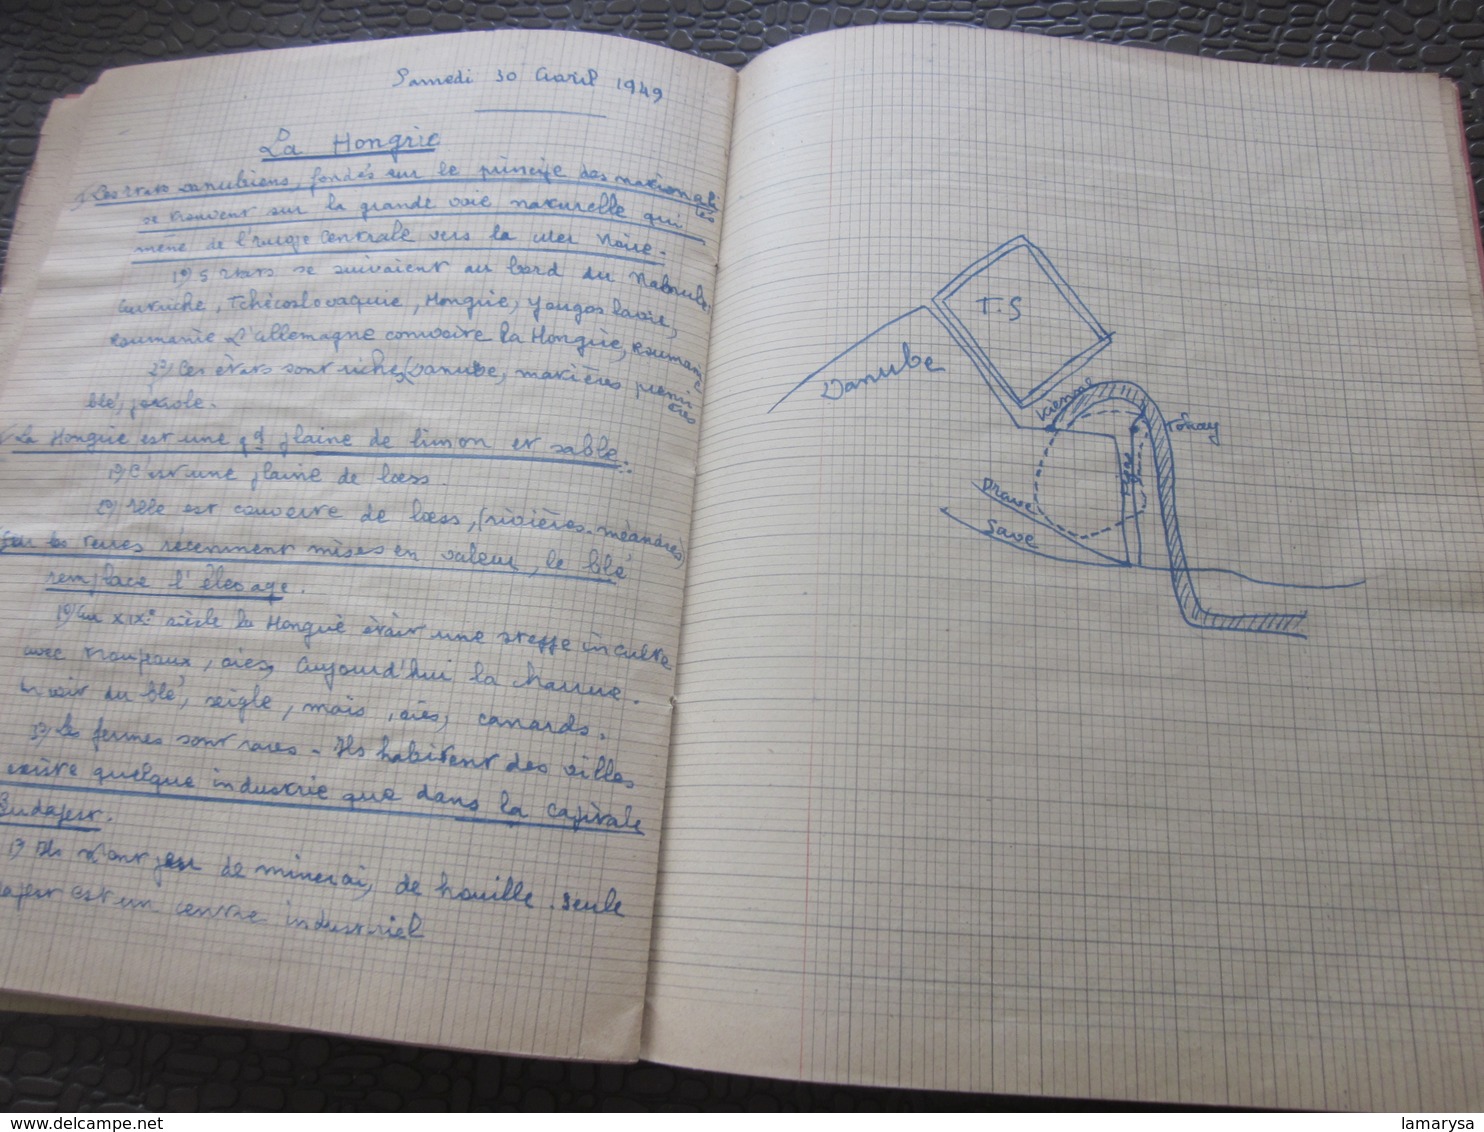 Samedi 30 Avril 1949
La Hongrie
Les états danubiens, fondés sur le principe des nationali
tés
se trouvent sur la grande voie naturelle qui
mène de l'Europe Centrale vers la Mer Noire.
1º) 5 états se suivaient au bord du Danube,
Autriche, Tchécoslovaquie, Hongrie, Yougoslavie,
Roumanie L'Allemagne convoite la Hongrie, Roumanie
2º) Ces états sont riches (Danube, matières premi
ères
blé, pétrole.
La Hongrie est une gd plaine de limon et sable:
1º) C'est une plaine de loess.
2º) Elle est couverte de loess, (rivières-méandres)
Sur les terres récemment mises en valeur, le blé
remplace l'élevage.
1º) Au XIXe siècle la Hongrie était une steppe inculte
avec troupeaux, oies, Aujourd'hui la charrue.
du blé, seigle, maïs, oies, canards.
3º) Les fermes sont rares - Ils habitent des villes
existe quelque industrie que dans la capitale
Budapest.
1º) Ils n'ont peu de minerai, de houille. Seule
dapest est un centre industriel
T.S
Danube
Vienne
Tokay
Tyze
Drave
Save
lamarysa